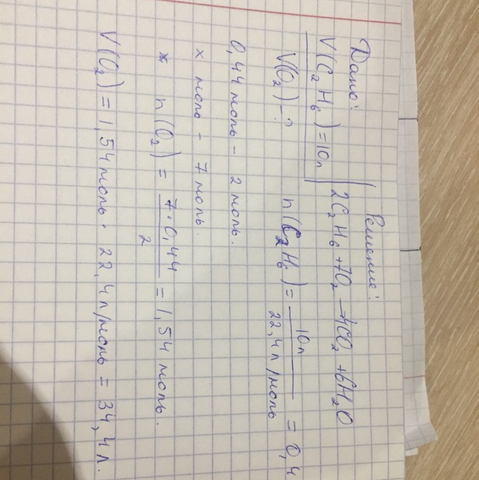 Дано: Решение:
V(C₂H₆)=10л 2C₂H₆+7O₂→4CO₂+6H₂O
V(O₂)-? n(C₂H₆)= 10л / 22,4л/моль = 0,4
0,44моль - 2 моль.
x моль - 7 моль.
n(O₂) = 7·0,44 / 2 = 1,54 моль.
V(O₂) = 1,54моль · 22,4л/моль = 34,4л.